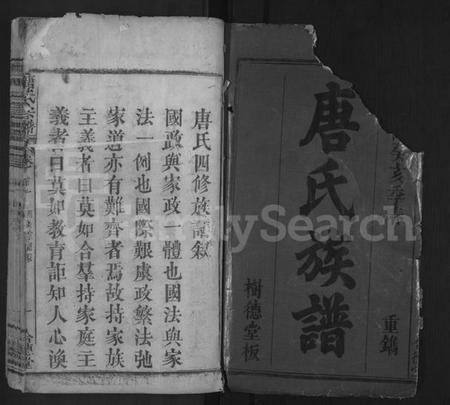 重鐫
唐氏族譜
樹德堂板
唐氏四修族譜敘
國政與家政一體也國法與家
法一例也國際艱虞政繁法弛
家道亦有難齊者焉故持家族
主義者曰莫如合羣持家庭主
義者曰莫如教育詎知人心渙
FamilySearch